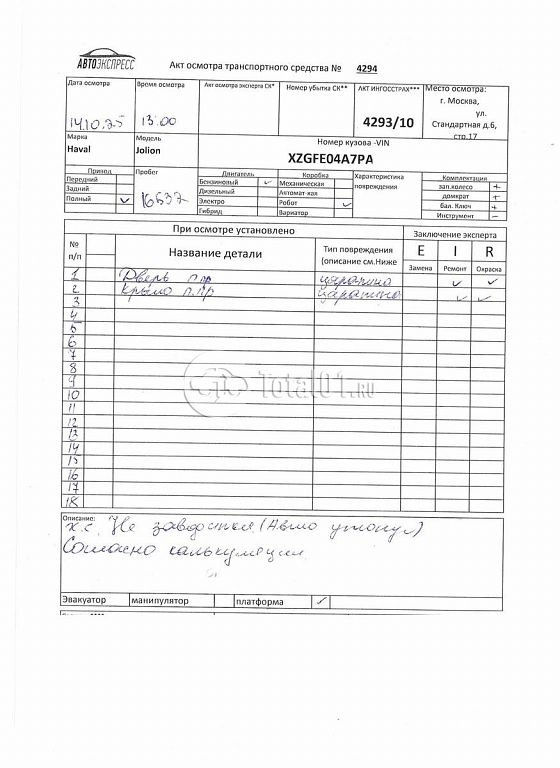 АВТОЭКСПРЕСС
Акт осмотра транспортного средства № 4294
Дата осмотра
14.10.25
Время осмотра
13:00
Акт осмотра эксперта СК*
Номер убытка СК**
АКТ ИНГОССТРАХ***
4293/10
Место осмотра:
г. Москва,
ул.
Стандартная д.6,
стр.17
Марка
Haval
Модель
Jolion
Номер кузова -VIN
XZGFE04A7PA
Привод
Передний
Задний
Полный ✓
Пробег
16537
Двигатель
Бензиновый ✓
Дизельный
Электро
Гибрид
Коробка
Механическая
Автомат-кая
Робот ✓
Вариатор
Характеристика
повреждения
Комплектация
зап.колесо +
домкрат +
бал. Ключ +
Инструмент -
При осмотре установлено
Заключение эксперта
№
п/п
Название детали
Тип повреждения
(описание см.Ниже
E I R
Замена Ремонт Окраска
1 Дверь п.пр царапина ✓ ✓
2 Крыло п.пр царапина ✓ ✓
3
4
5
6
7
8
9
10
11
12
13
14
15
16
17
18
Total01.RU
Описание:
х.с. Не заводится (Авто утонул)
Согласно калькуляции
Эвакуатор манипулятор платформа ✓